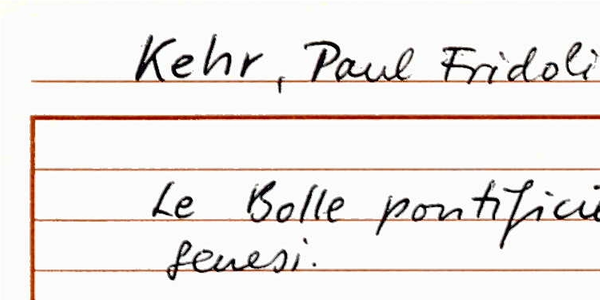 Kehr, Paul Fridoli
Le Bolle pontificie
senesi.